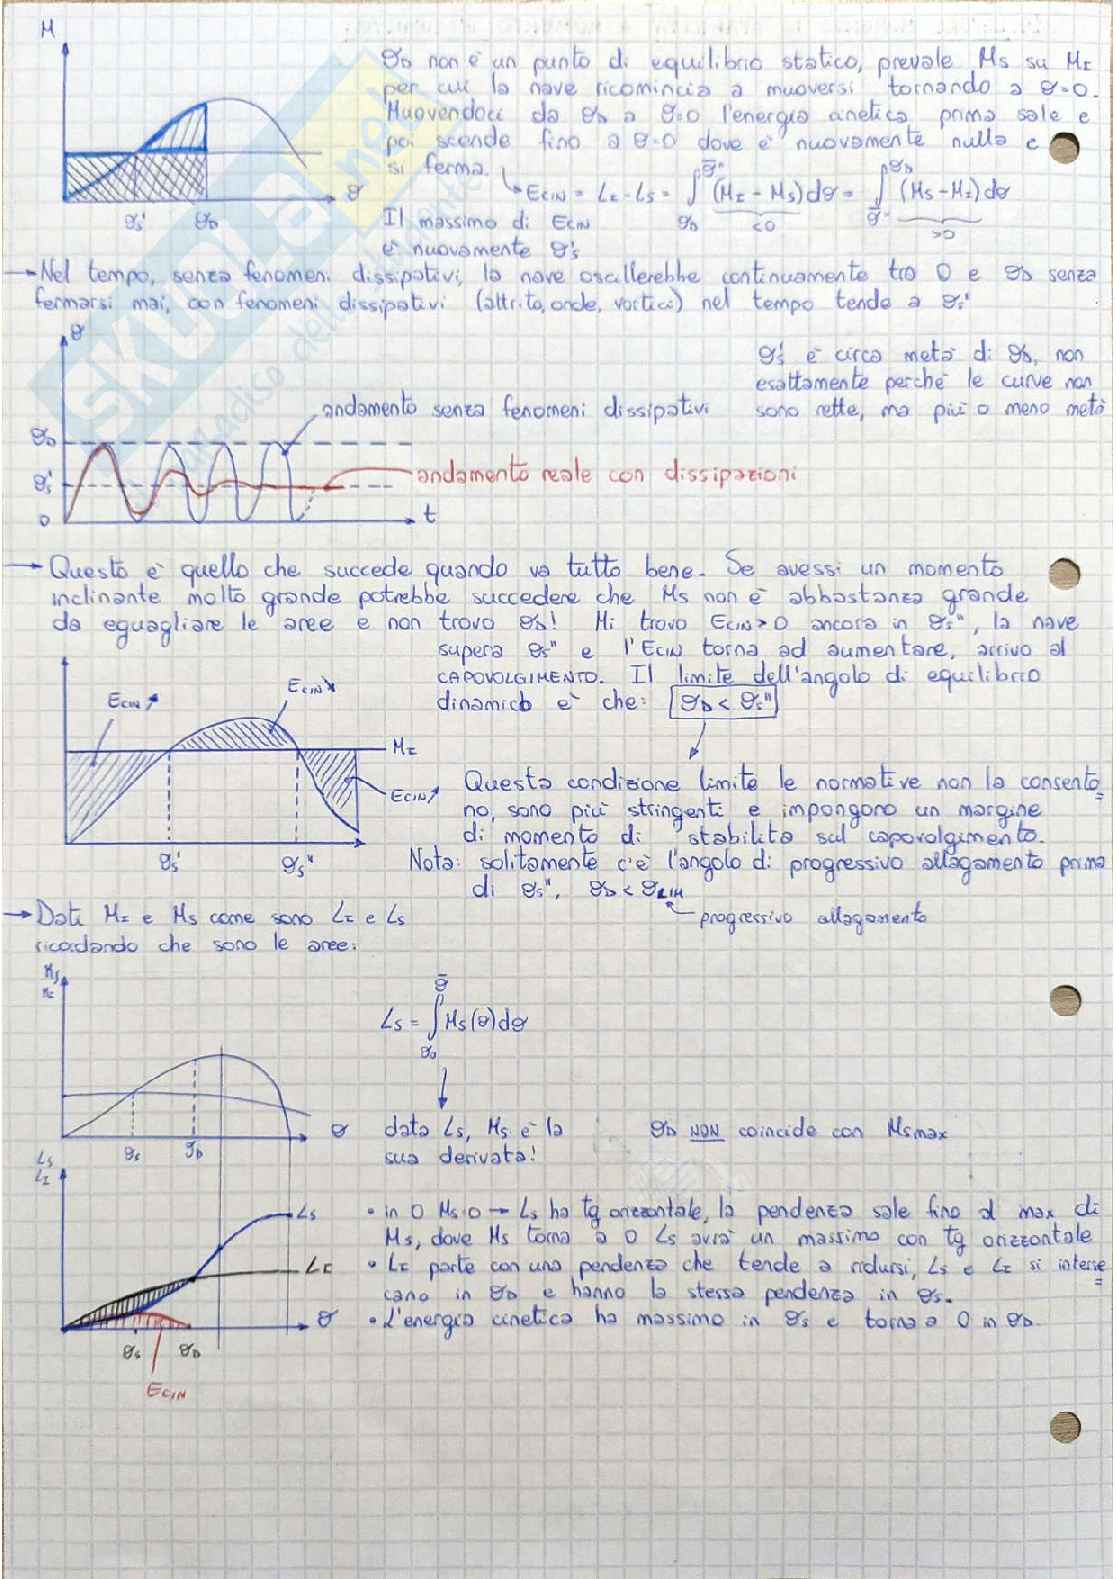 M
ϑD non è un punto di equilibrio statico, prevale Ms su MI
per cui la nave ricomincia a muoversi tornando a ϑ=0.
Muovendoci da ϑD a ϑ=0 l'energia cinetica prima sale e
poi scende fino a ϑ=0 dove è nuovamente nulla e
si ferma.
ECIN = LI - LS = ∫ϑD^ϑ̄" (MI - MS)dϑ = ∫ϑ̄"^ϑD (MS - MI)dϑ
<0 >0
ϑ
ϑs' ϑD
Il massimo di ECIN
è nuovamente ϑ's
→ Nel tempo, senza fenomeni dissipativi, la nave oscillerebbe continuamente tra 0 e ϑD senza
fermarsi mai, con fenomeni dissipativi (attrito, onde, vortici) nel tempo tende a ϑs'
ϑ
ϑs' è circa metà di ϑD, non
esattamente perché le curve non
sono rette, ma più o meno metà
andamento senza fenomeni dissipativi
ϑD
andamento reale con dissipazioni
ϑs'
0
t
→ Questo è quello che succede quando va tutto bene. Se avessi un momento
inclinante molto grande potrebbe succedere che Ms non è abbastanza grande
da eguagliare le aree e non trovo ϑD! Mi trovo ECIN>0 ancora in ϑs", la nave
supera ϑs" e l'ECIN torna ad aumentare, arrivo al
CAPOVOLGIMENTO. Il limite dell'angolo di equilibrio
dinamico è che: ϑD < ϑs"
ECIN↗
ECIN↘
MI
ECIN↗
Questa condizione limite le normative non la consento=
no, sono più stringenti e impongono un margine
di momento di stabilità sul capovolgimento.
ϑs' ϑs"
Nota: solitamente c'è l'angolo di progressivo allagamento prima
di ϑs", ϑD < ϑLIM
progressivo allagamento
→ Dati MI e Ms come sono LI e LS
ricordando che sono le aree:
Ms
MI
LS = ∫ϑ0^ϑ̄ Ms(ϑ)dϑ
ϑ
ϑs ϑD
data LS, Ms è la
sua derivata!
ϑD NON coincide con Msmax
LS
LI
LS
LI
ϑ
ϑs ϑD
ECIN
• in 0 Ms=0 → LS ha tg orizzontale, la pendenza sale fino al max di
Ms, dove Ms torna a 0 LS avrà un massimo con tg orizzontale
• LI parte con una pendenza che tende a ridursi, LS e LI si interse=
cano in ϑD e hanno la stessa pendenza in ϑs.
• L'energia cinetica ha massimo in ϑs e torna a 0 in ϑD.